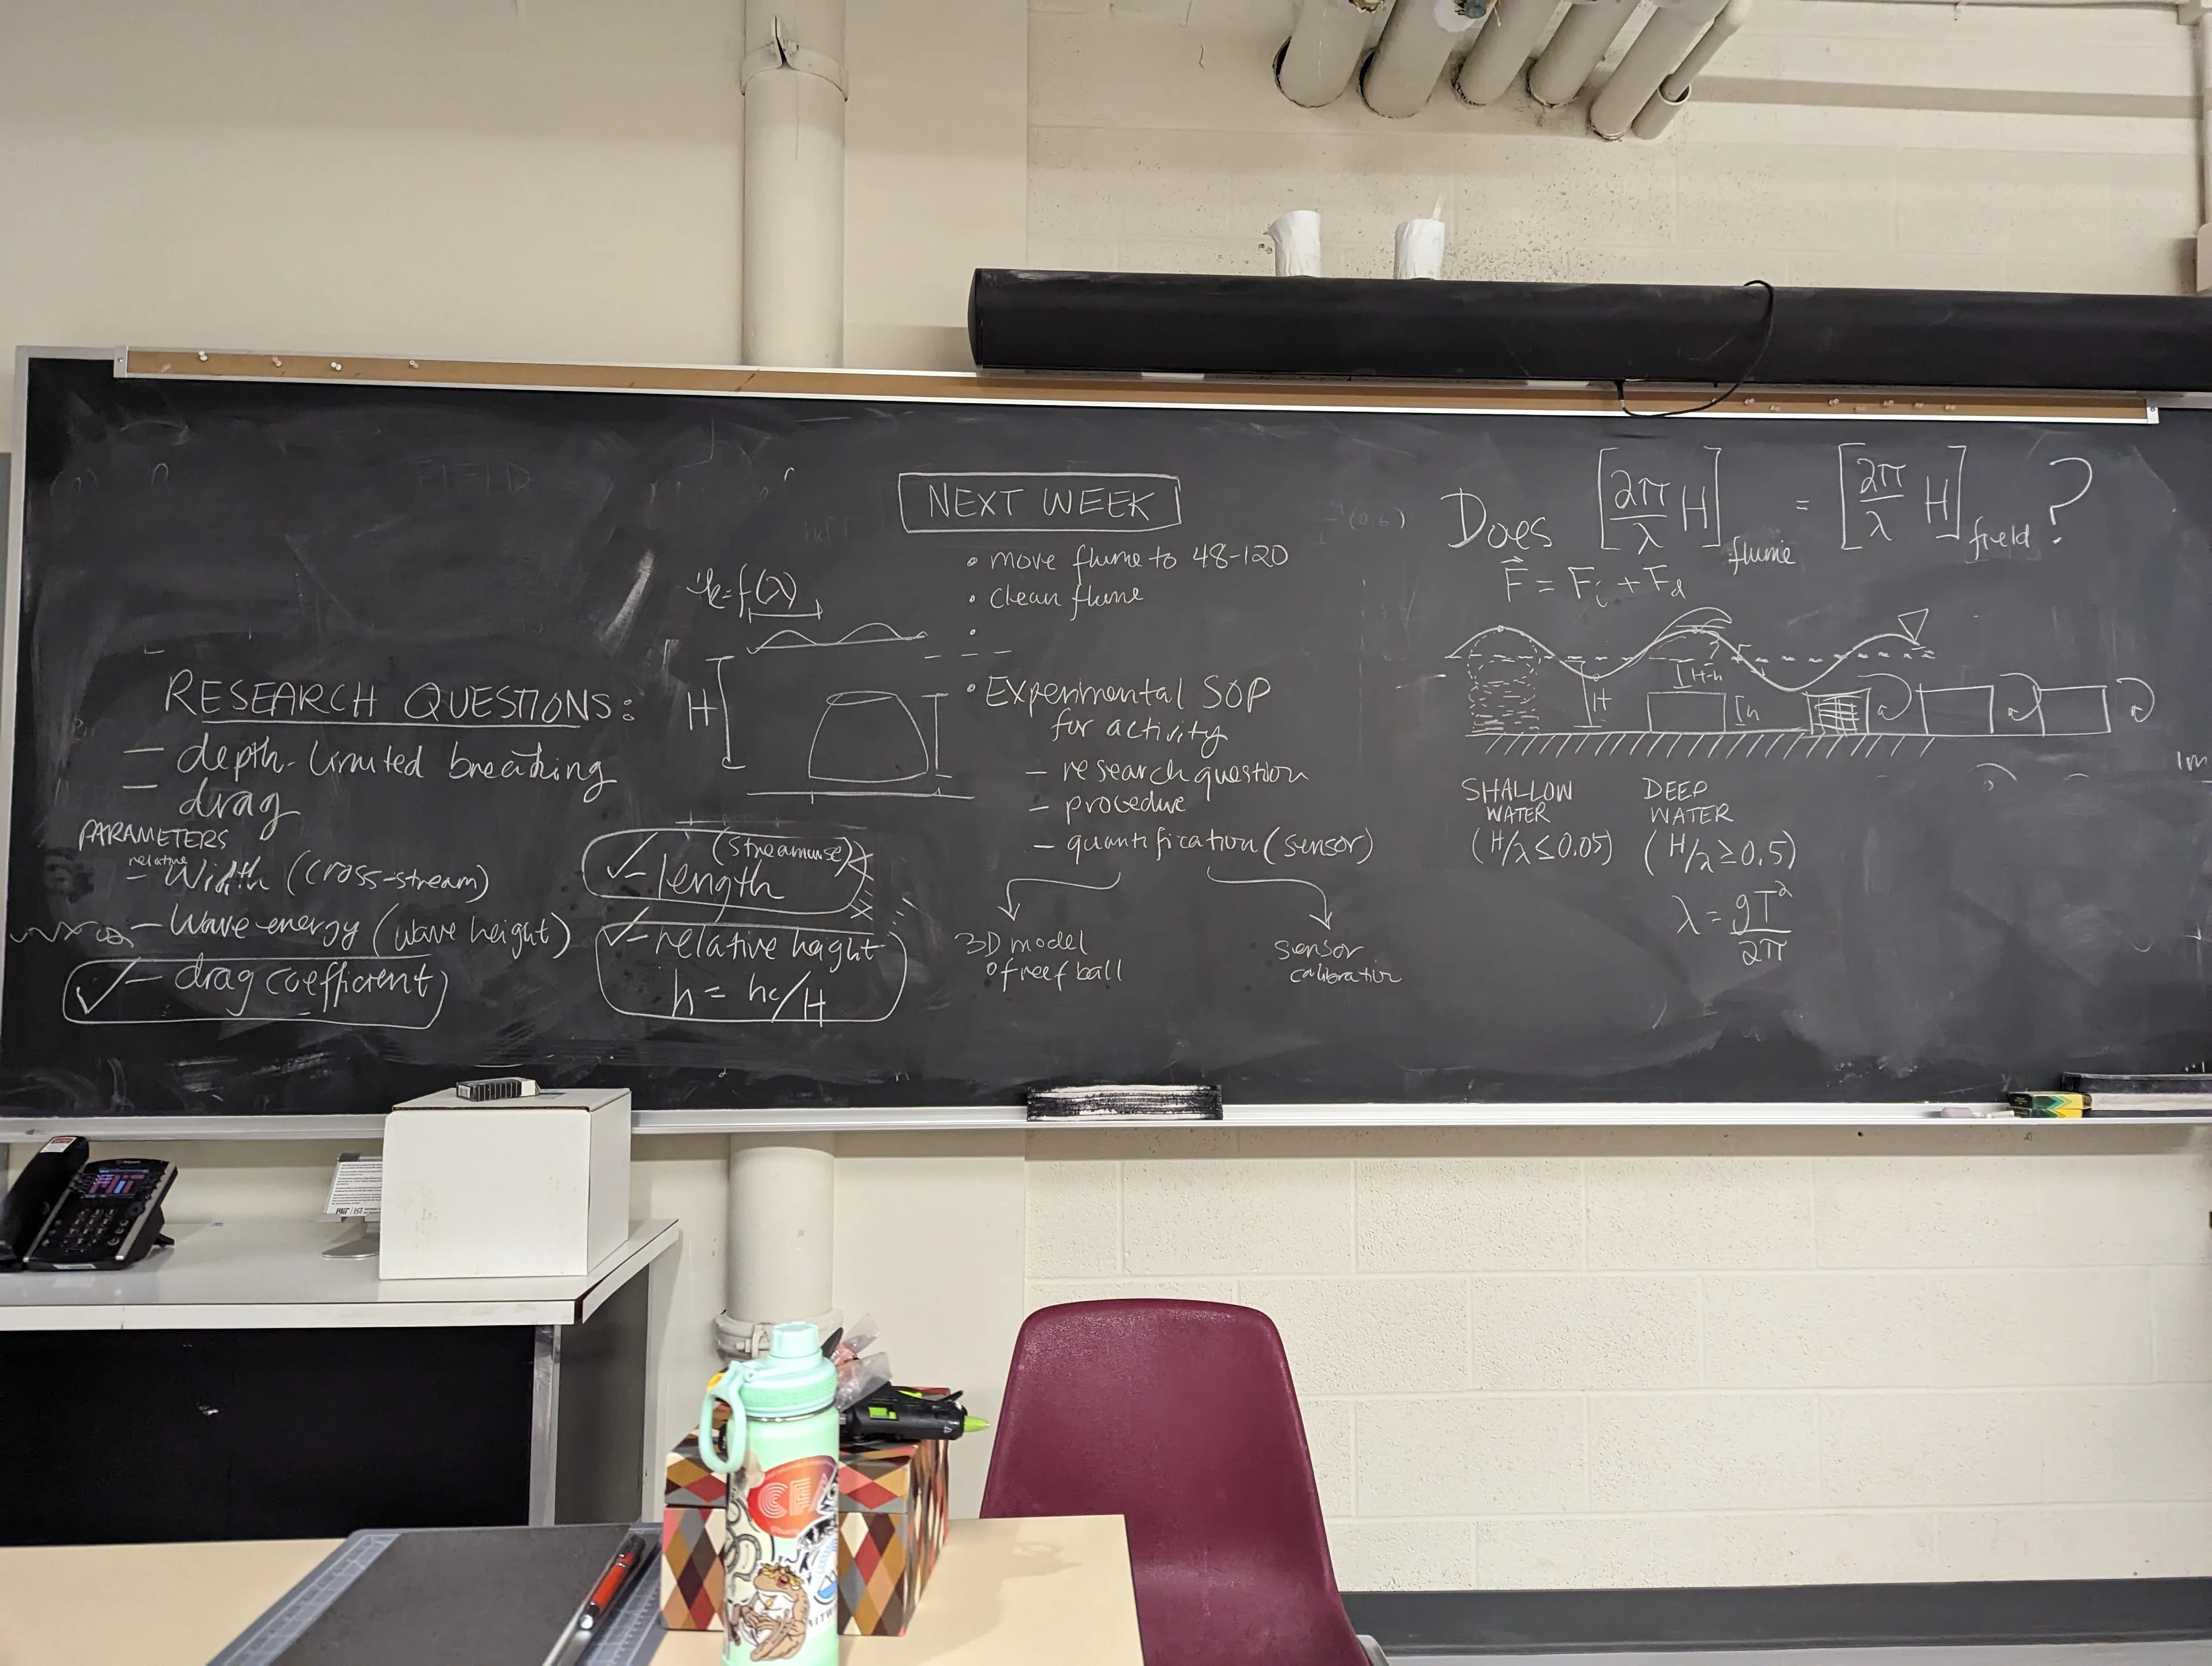 RESEARCH QUESTIONS:
— depth-limited breaking
— drag
PARAMETERS
— relative Width (cross-stream)
— Wave energy (wave height)
✓ — drag coefficient
✓ — length (streamwise)
✓ — relative height
h = hc/H
k=f(λ)
H
NEXT WEEK
• move flume to 48-120
• clean flume
•
• Experimental SOP
for activity
— research question
— procedure
— quantification (sensor)
3D model
of reef ball
sensor
calibration
Does [2π/λ H]flume = [2π/λ H]field ?
F⃗ = Fi + Fd
H
H-h
h
SHALLOW
WATER
(H/λ ≤ 0.05)
DEEP
WATER
(H/λ ≥ 0.5)
λ = gT²/2π
1m